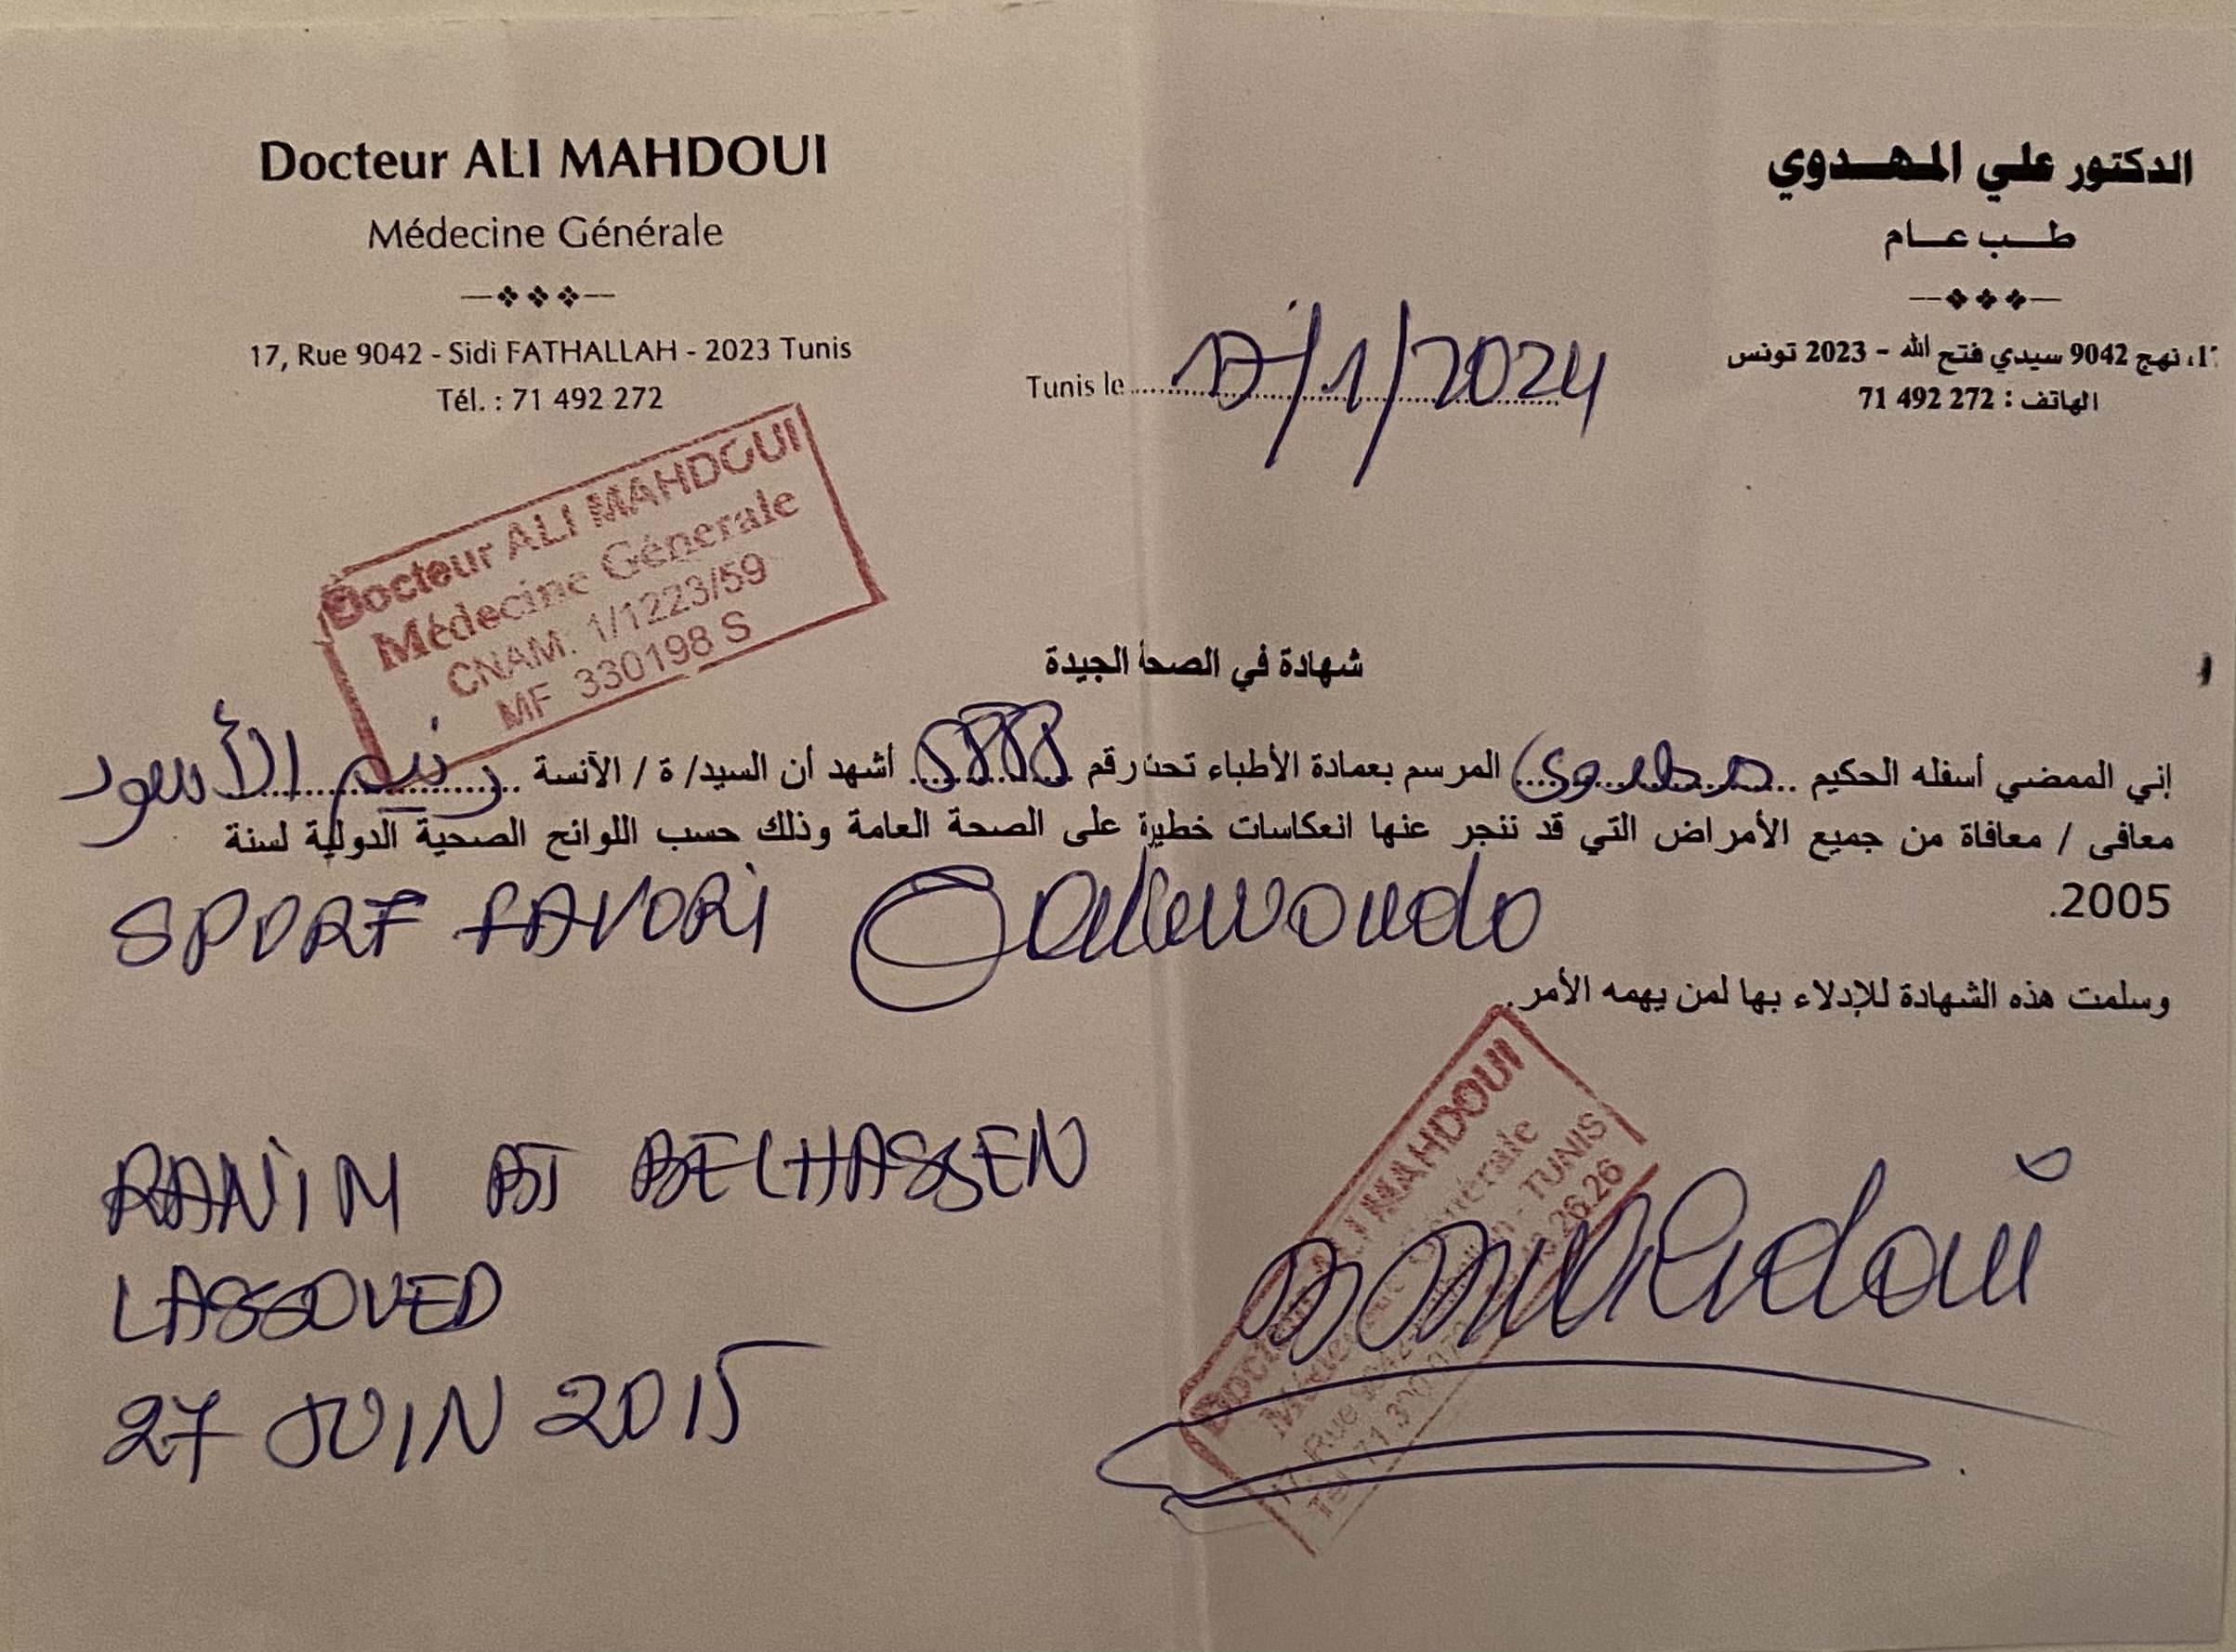 Docteur ALI MAHDOUI
Médecine Générale
17, Rue 9042 - Sidi FATHALLAH - 2023 Tunis
Tél. : 71 492 272
الدكتور علي المهدوي
طب عام
17، نهج 9042 سيدي فتح الله - 2023 تونس
الهاتف : 272 492 71
Tunis le 17/1/2024
Docteur ALI MAHDOUI
Médecine Générale
CNAM: 1/1223/59
MF 330198 S
شهادة في الصحة الجيدة
إني الممضي أسفله الحكيم مهدوي المرسم بعمادة الأطباء تحت رقم أشهد أن السيد/ ة / الآنسة رنيم الأسود
معافى / معافاة من جميع الأمراض التي قد تنجر عنها انعكاسات خطيرة على الصحة العامة وذلك حسب اللوائح الصحية الدولية لسنة
2005.
SPORT FAVORI Taekwondo
وسلمت هذه الشهادة للإدلاء بها لمن يهمه الأمر.
RANIM BT BELHASSEN
LASSOUED
27 JUIN 2015
Docteur ALI MAHDOUI
Médecine Générale
17, Rue 9042 - TUNIS
Tél 71
Mahdoui